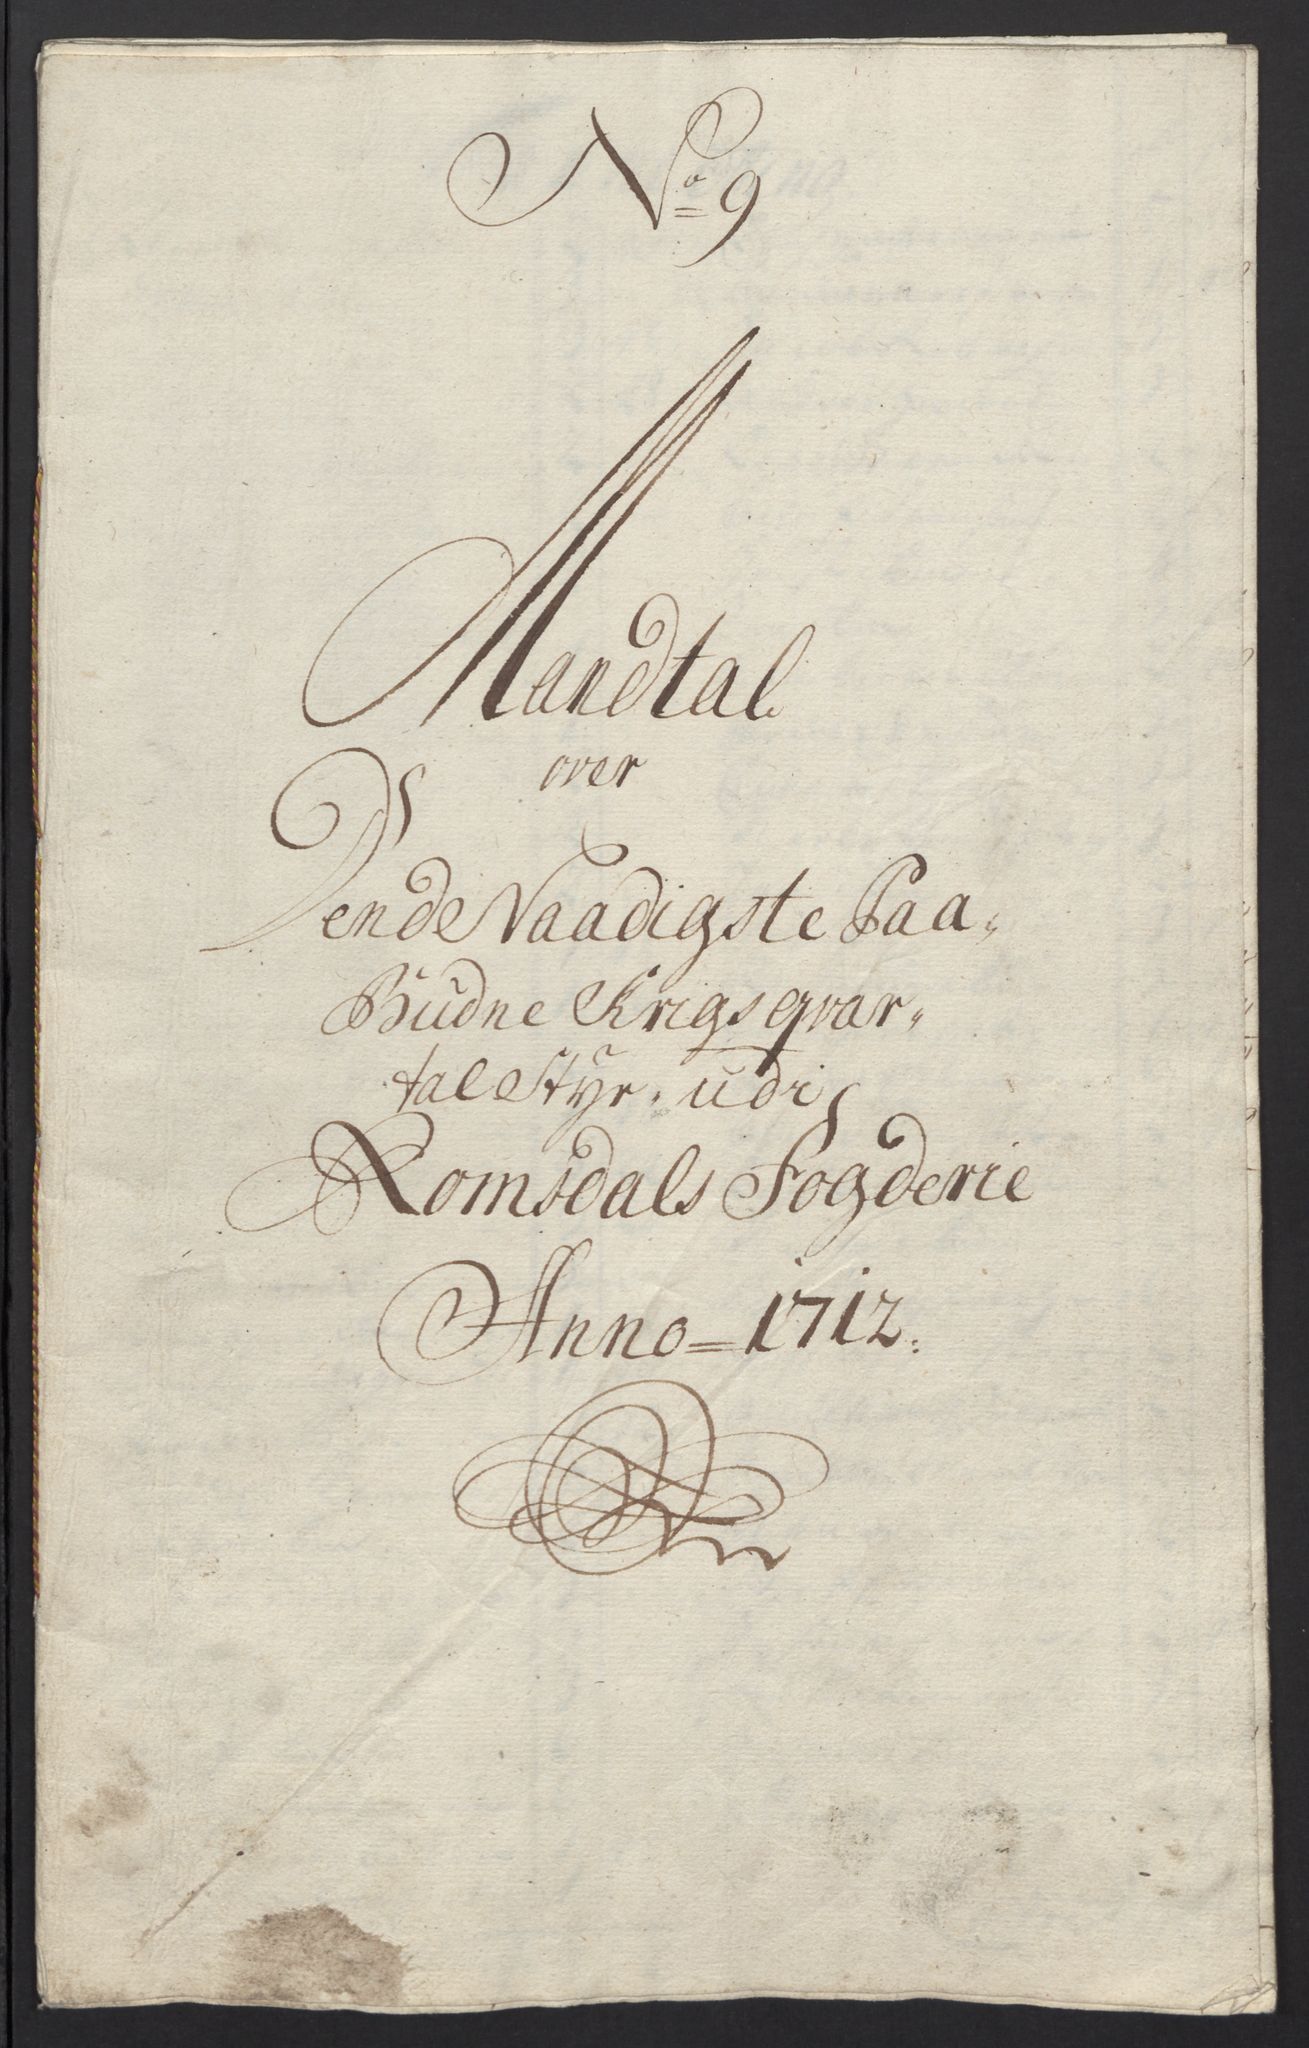 No 9
Mandtal
over
Dend e Naadigste Paa„
Budne Krigs qvar„
tal Styr. udi
Romsdals Fogderie
Anno = 1712.